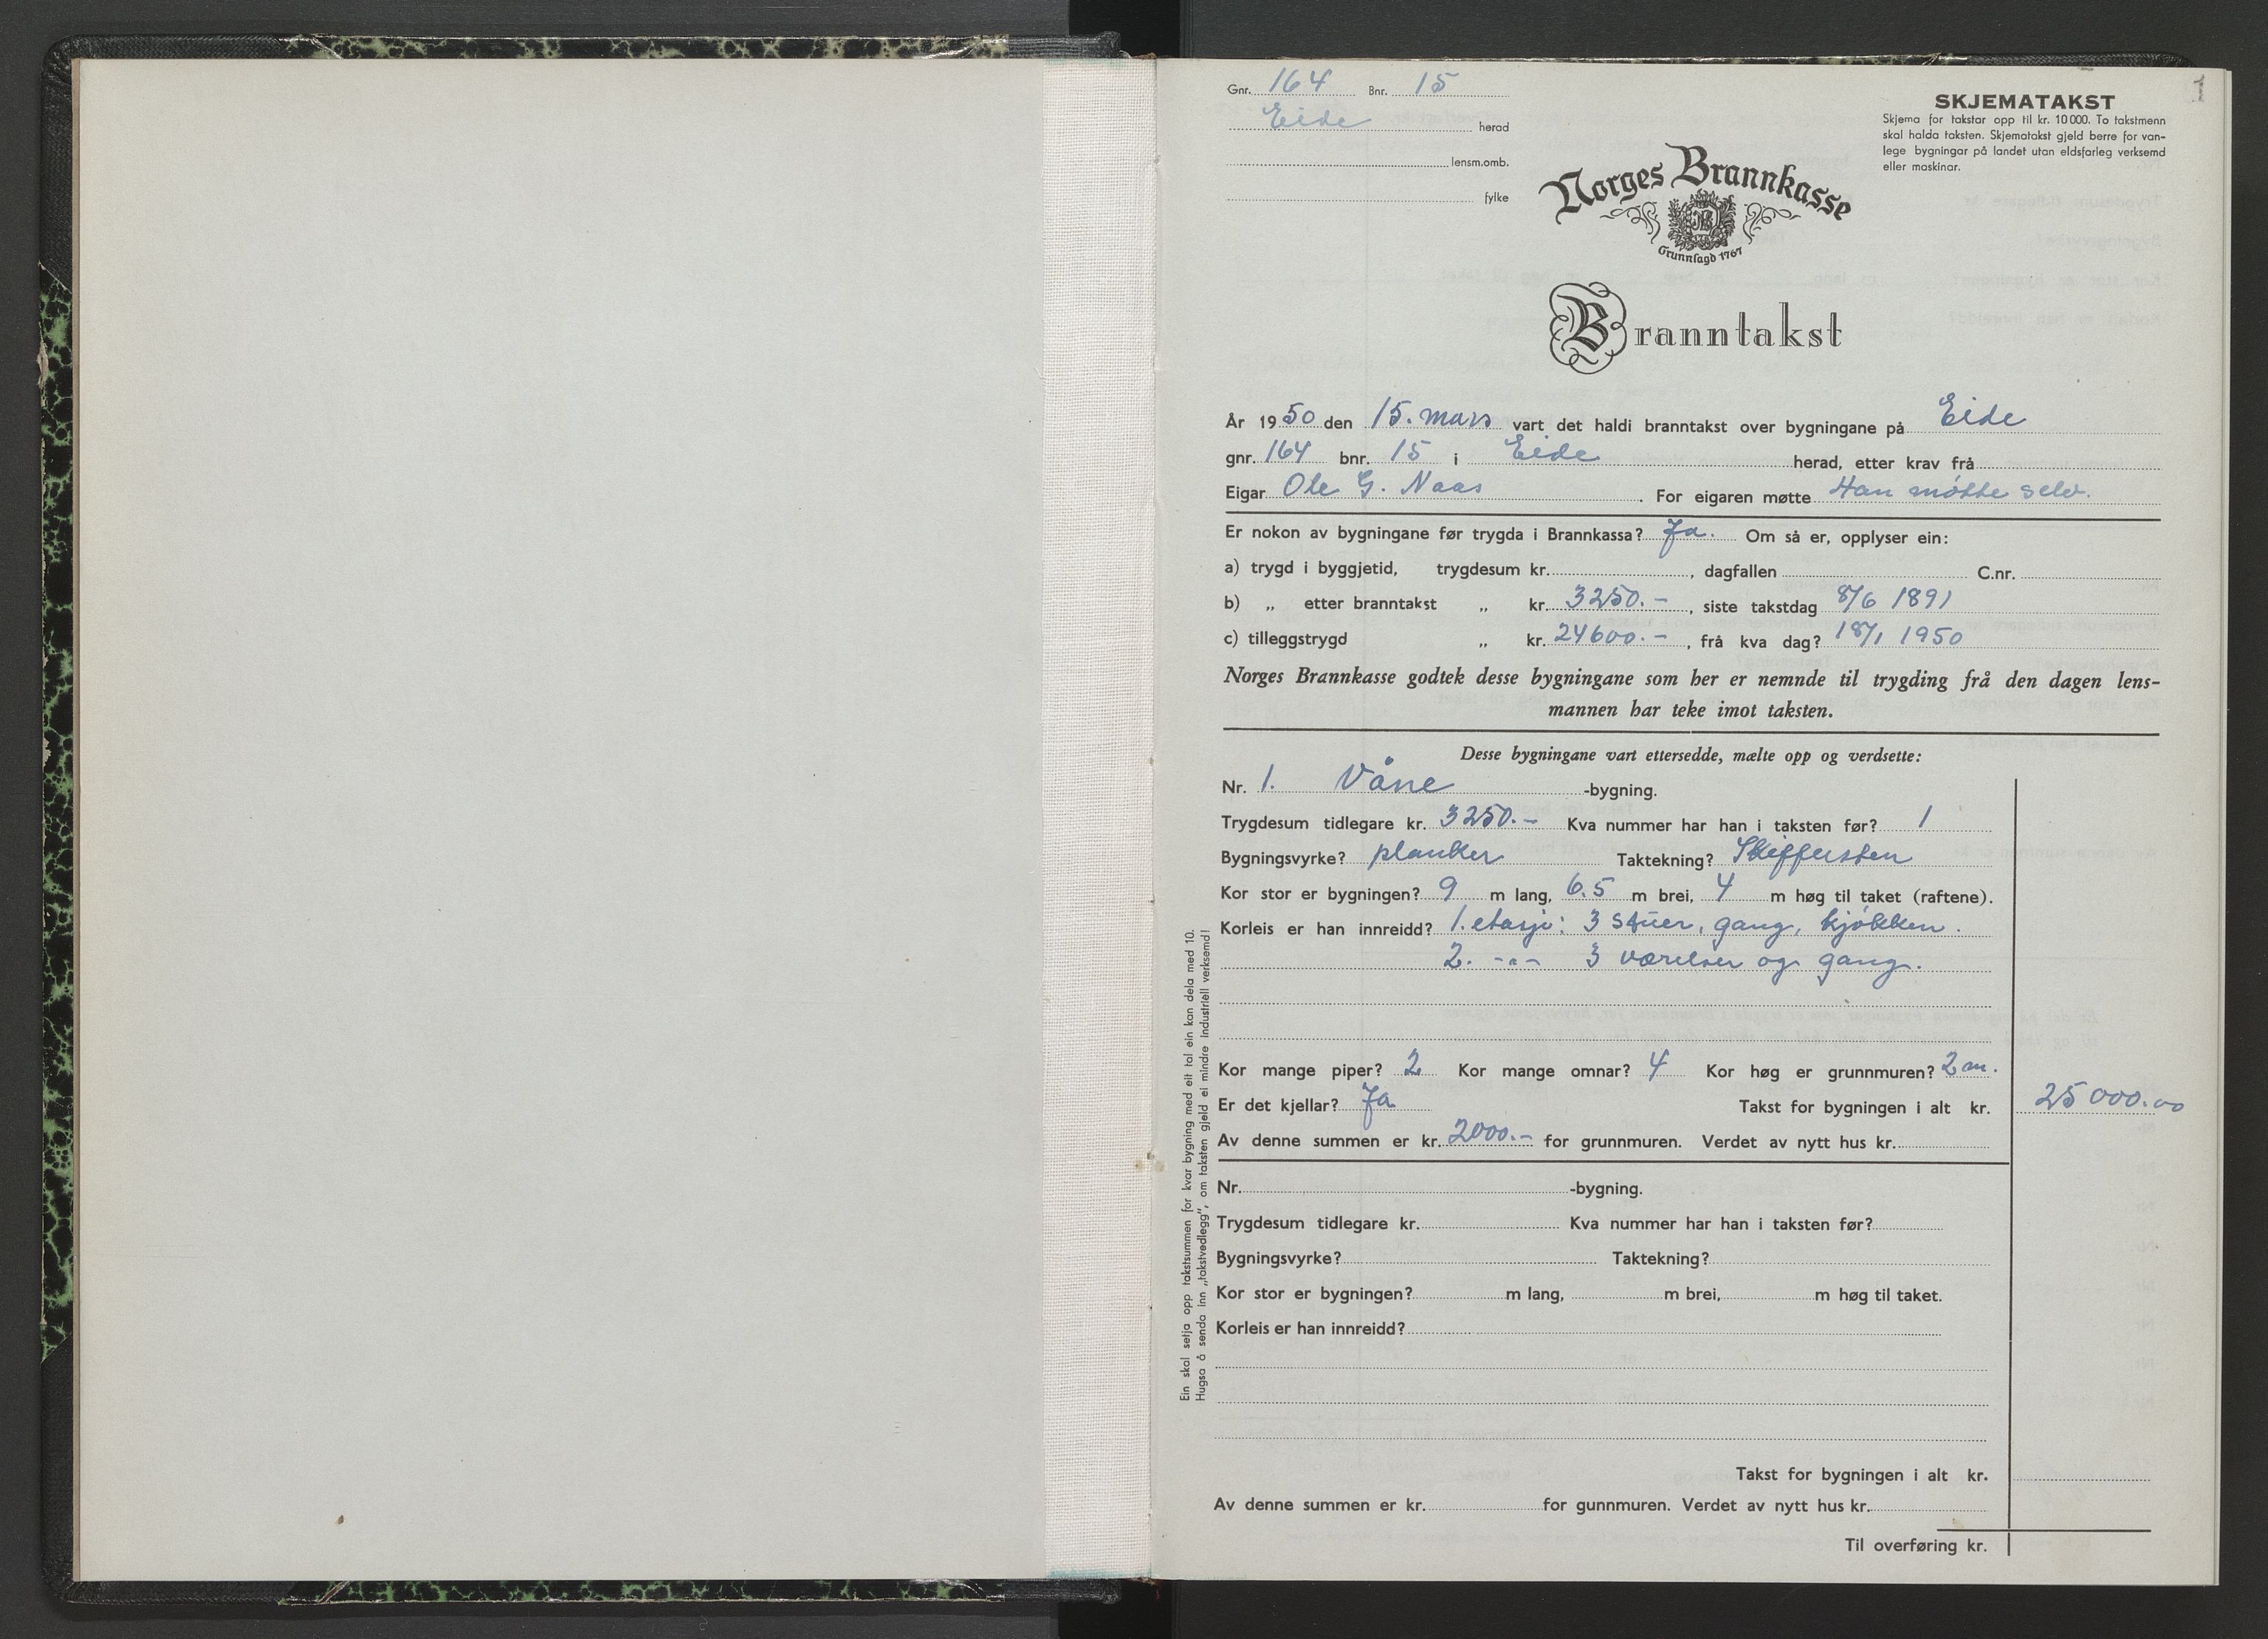 1
Gnr. 164 Bnr. 15
Eide herad
lensm.omb.
fylke
SKJEMATAKST
Skjema for takstar opp til kr. 10 000. To takstmenn
skal halda taksten. Skjematakst gjeld berre for van-
lege bygningar på landet utan eldsfarleg verksemd
eller maskinar.
Norges Brannkasse
Grunnlagd 1767
Branntakst
År 1950 den 15. mars vart det haldi branntakst over bygningane på Eide
gnr. 164 bnr. 15 i Eide herad, etter krav frå
Eigar Ole G. Naas. For eigaren møtte Han møtte selv.
Er nokon av bygningane før trygda i Brannkassa? Ja. Om så er, opplyser ein:
a) trygd i byggjetid, trygdesum kr. , dagfallen C.nr.
b) „ etter branntakst „ kr. 3250.- , siste takstdag 8/6 1891
c) tilleggstrygd „ kr. 24600.- , frå kva dag? 18/1 1950
Norges Brannkasse godtek desse bygningane som her er nemnde til trygding frå den dagen lens-
mannen har teke imot taksten.
Desse bygningane vart ettersedde, mælte opp og verdsette:
Nr. 1. Våne -bygning.
Trygdesum tidlegare kr. 3250.- Kva nummer har han i taksten før? 1
Bygningsvyrke? planker Taktekning? Skiffersten
Kor stor er bygningen? 9 m lang, 6.5 m brei, 4 m høg til taket (raftene).
Korleis er han innreidd? 1. etasje: 3 stuer, gang, kjøkken.
2. -"- 3 værelser og gang.
Kor mange piper? 2 Kor mange omnar? 4 Kor høg er grunnmuren? 2 m.
Er det kjellar? Ja Takst for bygningen i alt kr. 25 000.00
Av denne summen er kr. 2000.- for grunnmuren. Verdet av nytt hus kr.
Nr. -bygning.
Trygdesum tidlegare kr. Kva nummer har han i taksten før?
Bygningsvyrke? Taktekning?
Kor stor er bygningen? m lang, m brei, m høg til taket.
Korleis er han innreidd?
Takst for bygningen i alt kr.
Av denne summen er kr. for gunnmuren. Verdet av nytt hus kr.
Til overføring kr.
Ein skal setja opp takstsummen for kvar bygning med eit tal ein kan dela med 10.
Hugsa å senda inn „takstvedlegg", om taksten gjeld ei mindre industriell verksemd!